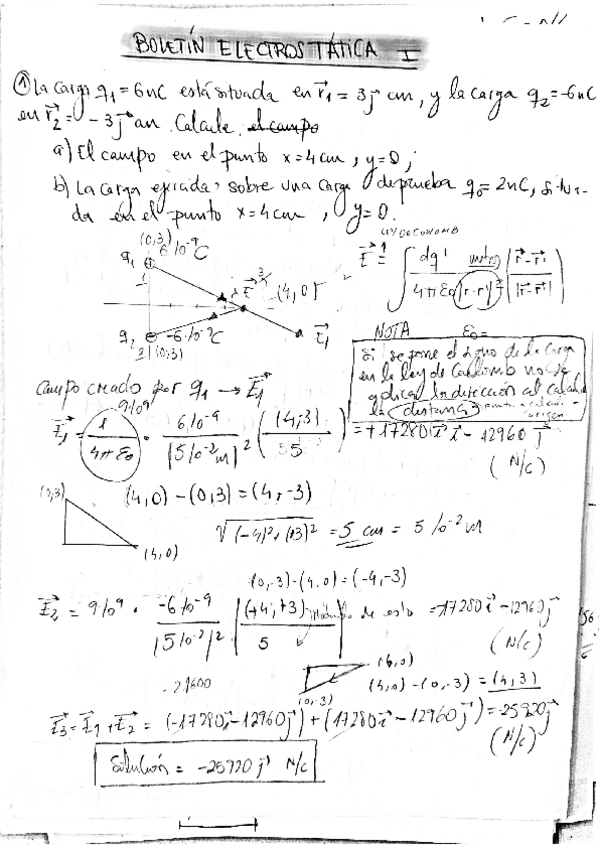 BOLETÍN ELECTROSTÁTICA I
① La carga q₁ = 6 nC está situada en r⃗₁ = 3 j⃗ cm, y la carga q₂ = -6 nC
en r⃗₂ = -3 j⃗ cm. Calcule el campo
a) El campo en el punto x = 4 cm, y = 0;
b) La carga ejercida, sobre una carga de prueba q₀ = 2 nC, situa-
da en el punto x = 4 cm, y = 0.
(0,3)
q₁ 6·10⁻⁹ C
(4,0)
E⃗₁
q₂ -6·10⁻⁹ C
(0,3)
LEY DE COULOMB
E⃗ = ∫ dq' / 4πε₀ |r-r'|² (r⃗-r⃗' / |r⃗-r⃗'|)
metros
NOTA ε₀ =
Si se pone el signo de la carga
en la ley de Coulomb no se
aplica la dirección al calcular
la distancia
origen
Campo creado por q₁ → E⃗₁
9·10⁹
E⃗₁ = 1 / 4πε₀ · 6·10⁻⁹ / |5·10⁻² m|² ((4,-3) / 5) = +17280 i⃗ - 12960 j⃗
(N/C)
(0,3)
(4,0) - (0,3) = (4,-3)
(4,0)
√(-4)² + (+3)² = 5 cm = 5·10⁻² m
(0,-3) - (4,0) = (-4,-3)
E⃗₂ = 9·10⁹ · -6·10⁻⁹ / |5·10⁻²|² ((+4,+3) / 5) de esto = -17280 i⃗ - 12960 j⃗
(N/C)
-21600
(4,0)
(0,-3)
(4,0) - (0,-3) = (4,3)
E⃗₃ = E⃗₁ + E⃗₂ = (-17280 i⃗ - 12960 j⃗) + (17280 i⃗ - 12960 j⃗) = -25920 j⃗
(N/C)
Solución = -25920 j⃗ N/C